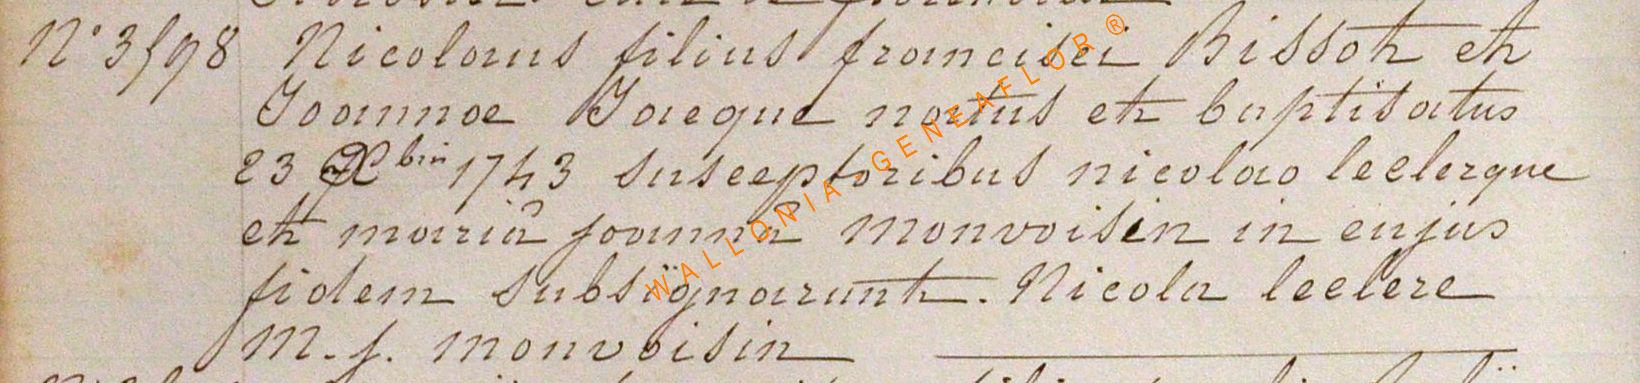 N° 3598 Nicolaus filius francisci Bissot et
Joannoe Jacque natus et baptisatus
23 Xbris 1743 susceptoribus nicolao leclerque
et mariâ joannâ monvoisin in cujus
fidem subsignarunt. Nicola leclere
M. j. monvoisin
WALLONIA-GENEAFLOR ®